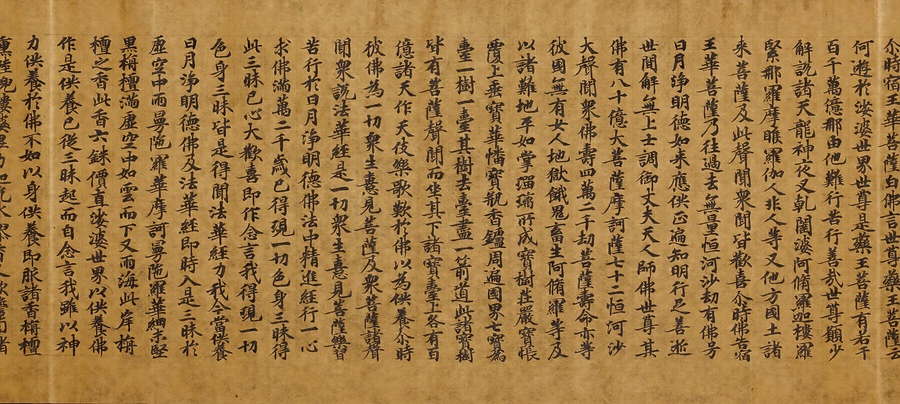 尒時宿王華菩薩白佛言世尊藥王菩薩云
何遊於娑婆世界世尊是藥王菩薩有若干
百千萬億那由他難行苦行善哉世尊願少
解說諸天龍神夜叉乹闥婆阿脩羅迦樓羅
緊那羅摩睺羅伽人非人等又他方國土諸
來菩薩及此聲聞衆聞皆歡喜尒時佛告宿
王華菩薩乃往過去無量恒河沙劫有佛号
日月淨明德如來應供正遍知明行足善逝
世間解無上士調御丈夫天人師佛世尊其
佛有八十億大菩薩摩訶薩七十二恒河沙
大聲聞衆佛壽四萬二千劫菩薩壽命亦等
彼國無有女人地獄餓鬼畜生阿脩羅等及
以諸難地平如掌瑠璃所成寶樹莊嚴寶帳
覆上垂寶華幡寶瓶香鑪周遍國界七寶為
臺一樹一臺其樹去臺盡一箭道此諸寶樹
皆有菩薩聲聞而坐其下諸寶臺上各有百
億諸天作天伎樂歌歎於佛以為供養尒時
彼佛為一切衆生憙見菩薩及衆菩薩諸聲
聞衆說法華經是一切衆生憙見菩薩樂習
苦行於日月淨明德佛法中精進經行一心
求佛滿萬二千歲已得現一切色身三昧得
此三昧已心大歡喜即作念言我得現一切
色身三昧皆是得聞法華經力我今當供養
日月淨明德佛及法華經即時入是三昧於
虛空中雨曼陁羅華摩訶曼陁羅華細末堅
黑栴檀滿虛空中如雲而下又雨海此岸栴
檀之香此香六銖價直娑婆世界以供養佛
作是供養已從三昧起而自念言我雖以神
力供養於佛不如以身供養即服諸香栴檀